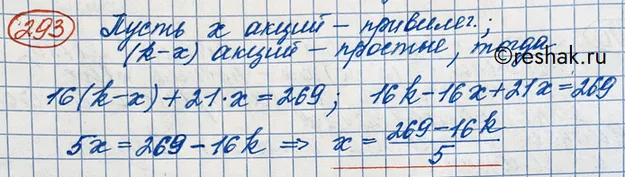 293 Пусть x акций – привилег.;
(k-x) акций – простые, тогда
©reshak.ru
16(k-x)+21·x=269; 16k-16x+21x=269
5x=269-16k ⇒ x=\frac{269-16k}{5}